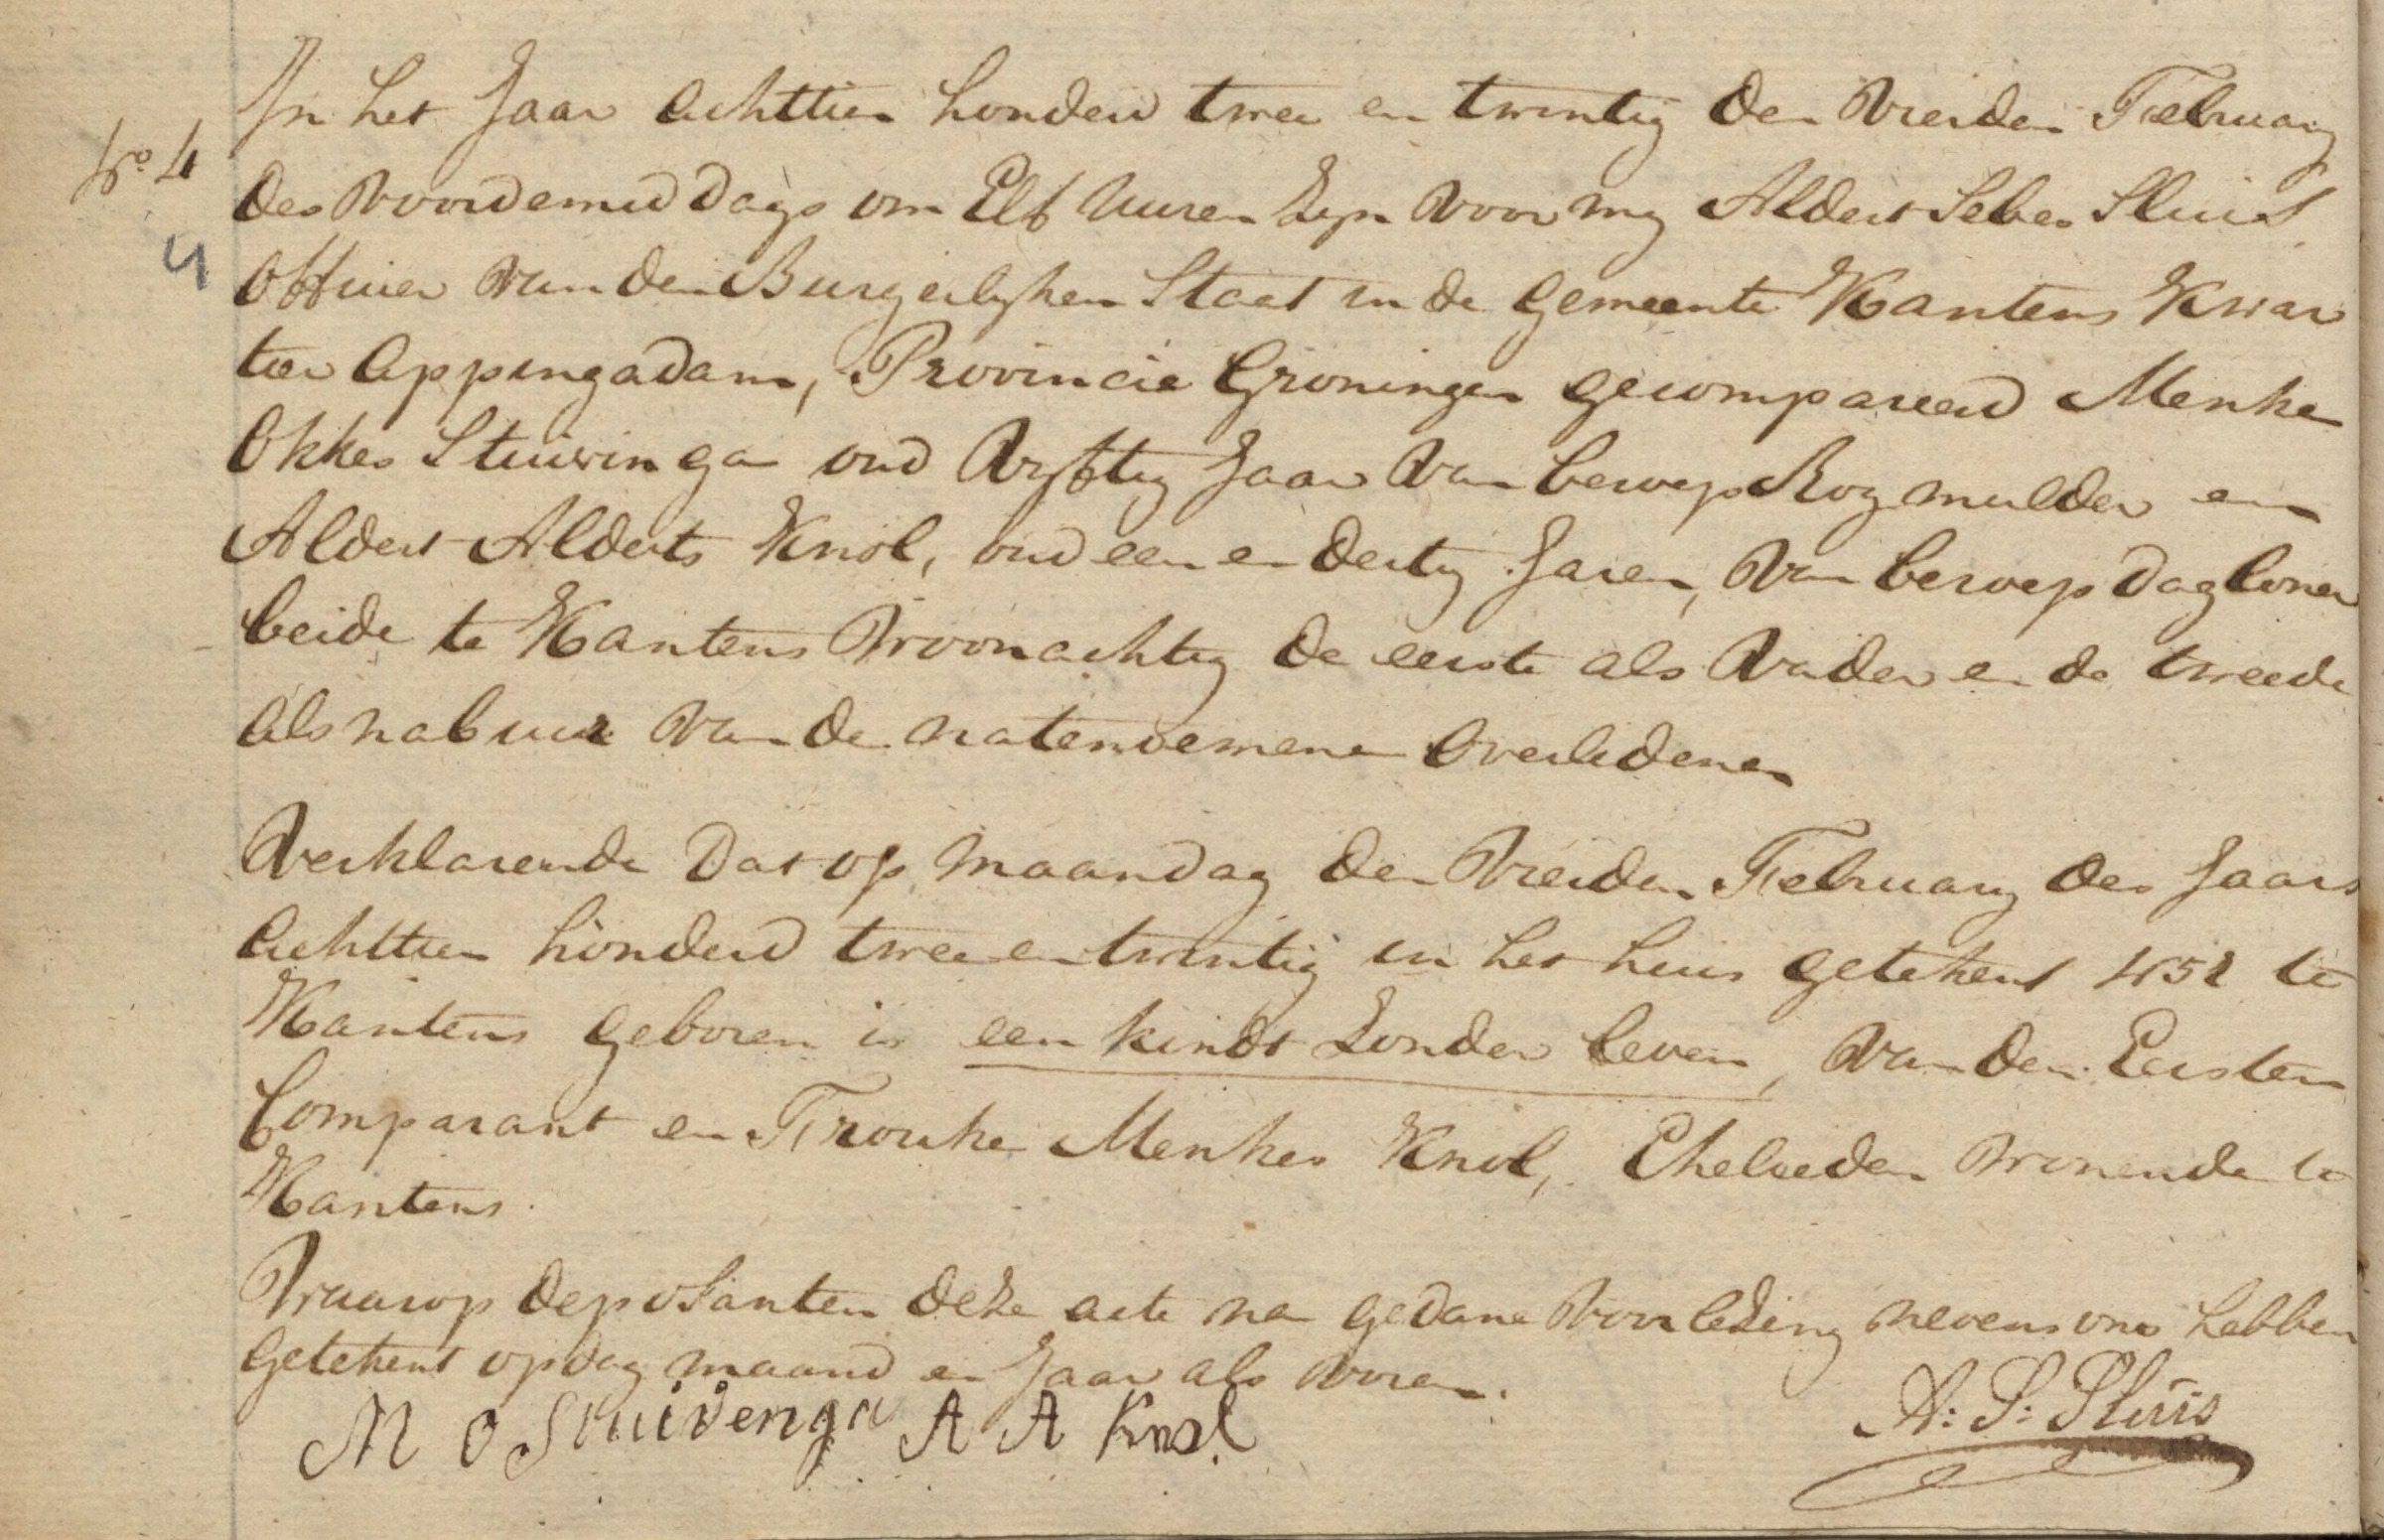 In het Jaar Achttien honderd twee en twintig den Vierden February
No 4
des Voordemiddags om Elf Uuren Zyn Voor my Aldert Sebes Sluis
4
Officier van den Burgerlyken Staat in de Gemeente Kantens Kwar
tier Appingadam, Provincie Groningen gecompareerd Menke
Okkes Stuivinga oud Vyftig Jaar Van beroep Rogmulder en
Aldert Alderts Knol, oud een en dertig Jaren, Van beroep dagloner
beide te Kantens Woonachtig de eerste als Vader en de tweede
als nabuur Van de natenoemene Overledenen
Verklarende Dat op Maandag den Vierden February des Jaars
Achttien honderd twee en twintig in het huis getekent 451 te
Kantens geboren is een kindt Zonder leven, Van den Eersten
Comparant en Frouke Menkes Knol, Ehelieden Wonende te
Kantens.
Waarop deposanten deze acte na gedane Voorlezing nevens ons hebben
getekent op dag maand en Jaar als Voren.
M O Stuivenga A A Knol
A: S: Sluis